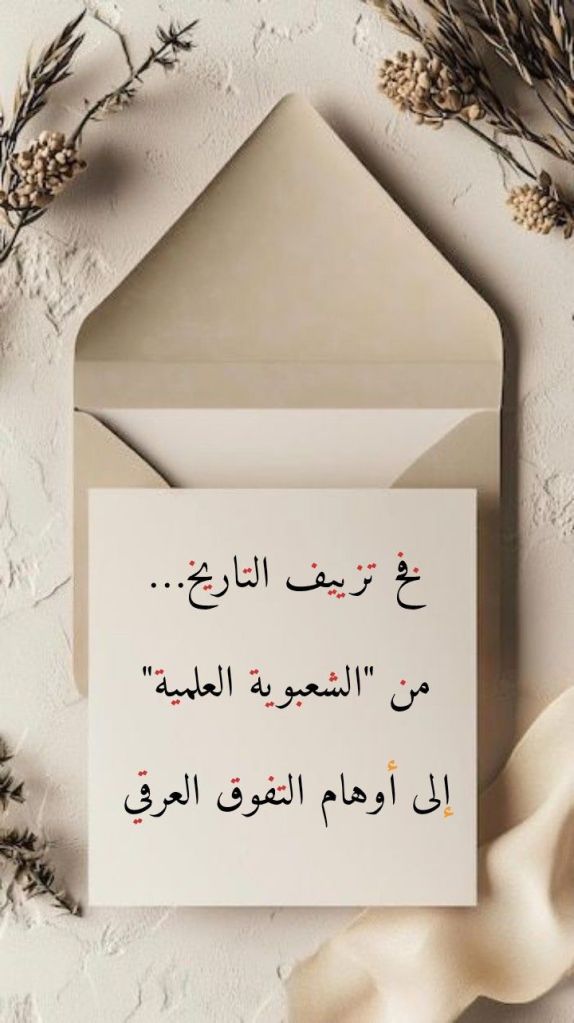 فخ تزييف التاريخ...
من "الشعبوية العلمية"
إلى أوهام التفوق العرقي